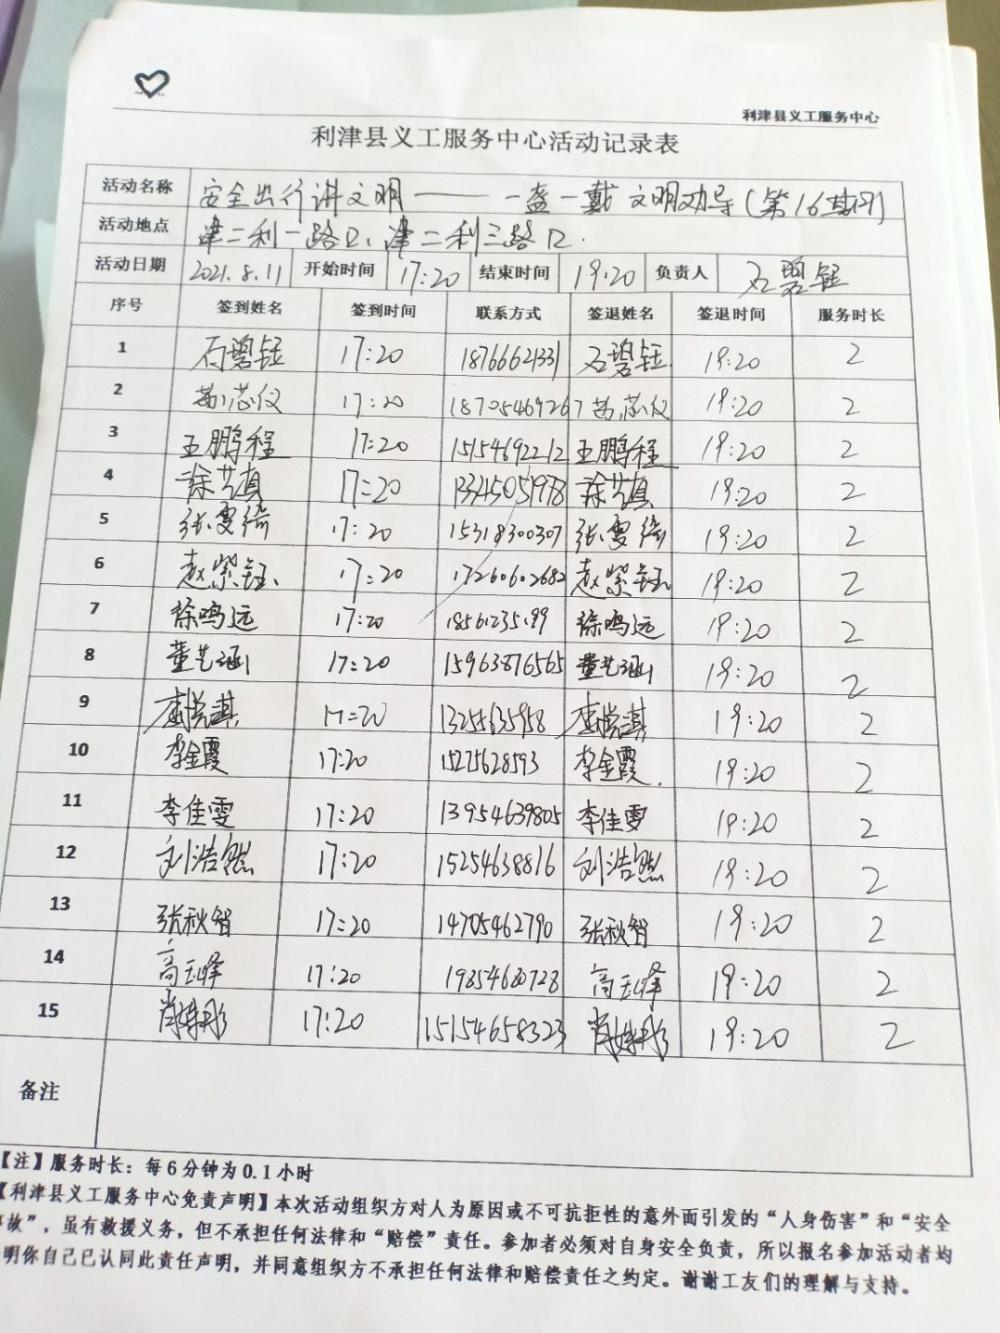 利津县义工服务中心
利津县义工服务中心活动记录表
活动名称 安全出行讲文明——一盔一戴 文明劝导(第16期)
活动地点 津二利一路口、津二利三路口.
活动日期 2021.8.11 开始时间 17:20 结束时间 19:20 负责人 石碧钰
序号 签到姓名 签到时间 联系方式 签退姓名 签退时间 服务时长
1 石碧钰 17:20 18766621331 石碧钰 19:20 2
2 芯仪 17:20 18705469267 芯仪 19:20 2
3 王鹏程 17:20 15154692212 王鹏程 19:20 2
4 徐艺真 17:20 13345051978 徐艺真 19:20 2
5 张雯绮 17:20 15318300307 张雯绮 19:20 2
6 赵紫钰 17:20 17260602682 赵紫钰 19:20 2
7 徐鸣远 17:20 19:20 2
8 董艺涵 17:20 15963876565 董艺涵 19:20 2
9 悦淇 17:20 13255635958 悦淇 19:20 2
10 李金霞 17:20 15275628593 李金霞 19:20 2
11 李佳雯 17:20 13954639805 李佳雯 19:20 2
12 刘浩然 17:20 15254638816 刘浩然 19:20 2
13 张秋智 17:20 14705462790 张秋智 19:20 2
14 高玉峰 17:20 高玉峰 19:20 2
15 17:20 15154658323 19:20 2
备注
【注】服务时长：每6分钟为0.1小时
【利津县义工服务中心免责声明】本次活动组织方对人为原因或不可抗拒性的意外而引发的“人身伤害”和“安全
事故”，虽有救援义务，但不承担任何法律和“赔偿”责任。参加者必须对自身安全负责，所以报名参加活动者均
明你自己已认同此责任声明，并同意组织方不承担任何法律和赔偿责任之约定。谢谢工友们的理解与支持。